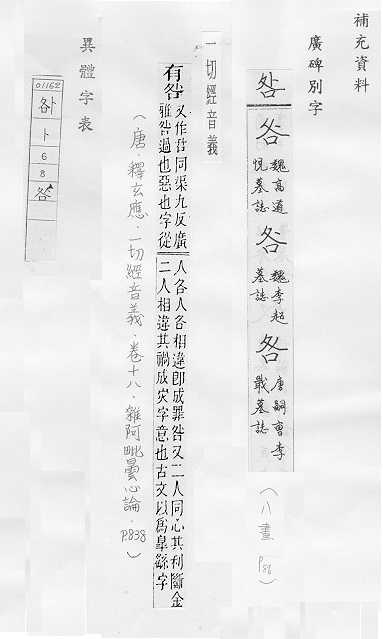 補充資料
廣碑別字
咎
咎 魏高道悅墓誌
咎 魏李超墓誌
咎 唐嗣曹李戢墓誌
(八畫 P86)
一切經音義
有咎
又作同渠九反廣
雅咎過也惡也字從
人各人各相違即成罪咎又二人同心其利斷金
二人相違其禍成灾字意也古文以為皐繇字
(唐.釋玄應.一切經音義.卷十八.雜阿毗曇心論.P.838)
異體字表
01162
卜
6
8
咎